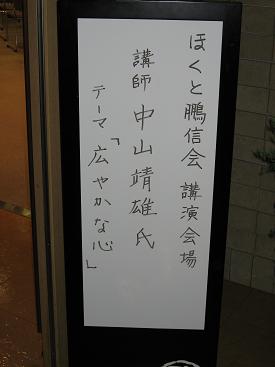 ほくと鵬信会 講演会場
講師 中山靖雄氏
テーマ「広やかな心」